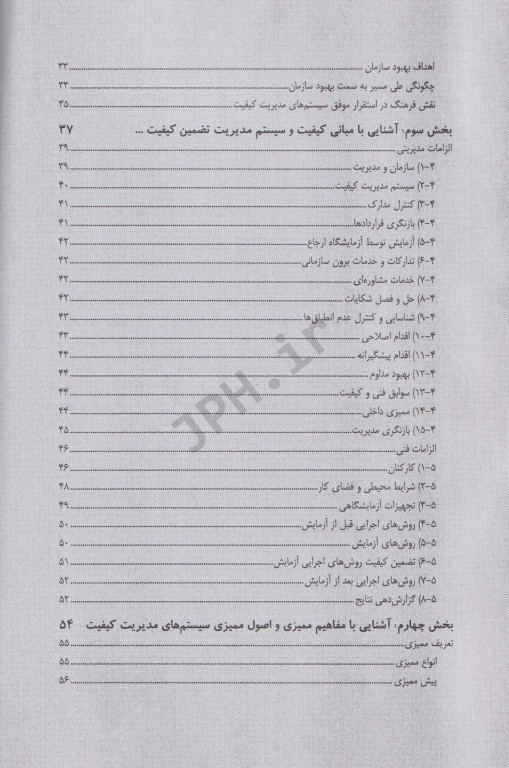 اهداف بهبود سازمان ۳۳
چگونگی طی مسیر به سمت بهبود سازمان ۳۳
نقش فرهنگ در استقرار موفق سیستم‌های مدیریت کیفیت ۳۵
بخش سوم: آشنایی با مبانی کیفیت و سیستم مدیریت تضمین کیفیت ... ۳۷
الزامات مدیریتی ۳۹
۴-۱) سازمان و مدیریت ۳۹
۴-۲) سیستم مدیریت کیفیت ۴۰
۴-۳) کنترل مدارک ۴۱
۴-۴) بازنگری قراردادها ۴۱
۴-۵) آزمایش توسط آزمایشگاه ارجاع ۴۲
۴-۶) تدارکات و خدمات برون سازمانی ۴۲
۴-۷) خدمات مشاوره‌ای ۴۲
۴-۸) حل و فصل شکایات ۴۲
۴-۹) شناسایی و کنترل عدم انطباق‌ها ۴۳
۴-۱۰) اقدام اصلاحی ۴۳
۴-۱۱) اقدام پیشگیرانه ۴۴
۴-۱۲) بهبود مداوم ۴۴
۴-۱۳) سوابق فنی و کیفیت ۴۴
۴-۱۴) ممیزی داخلی ۴۴
۴-۱۵) بازنگری مدیریت ۴۵
الزامات فنی ۴۶
۵-۱) کارکنان ۴۶
۵-۲) شرایط محیطی و فضای کار ۴۸
۵-۳) تجهیزات آزمایشگاهی ۴۹
۵-۴) روش‌های اجرایی قبل از آزمایش ۵۰
۵-۵) روش‌های آزمایش ۵۰
۵-۶) تضمین کیفیت روش‌های اجرایی آزمایش ۵۱
۵-۷) روش‌های اجرایی بعد از آزمایش ۵۲
۵-۸) گزارش‌دهی نتایج ۵۲
بخش چهارم: آشنایی با مفاهیم ممیزی و اصول ممیزی سیستم‌های مدیریت کیفیت ۵۴
تعریف ممیزی ۵۵
انواع ممیزی ۵۵
پیش ممیزی ۵۶
JPH.ir